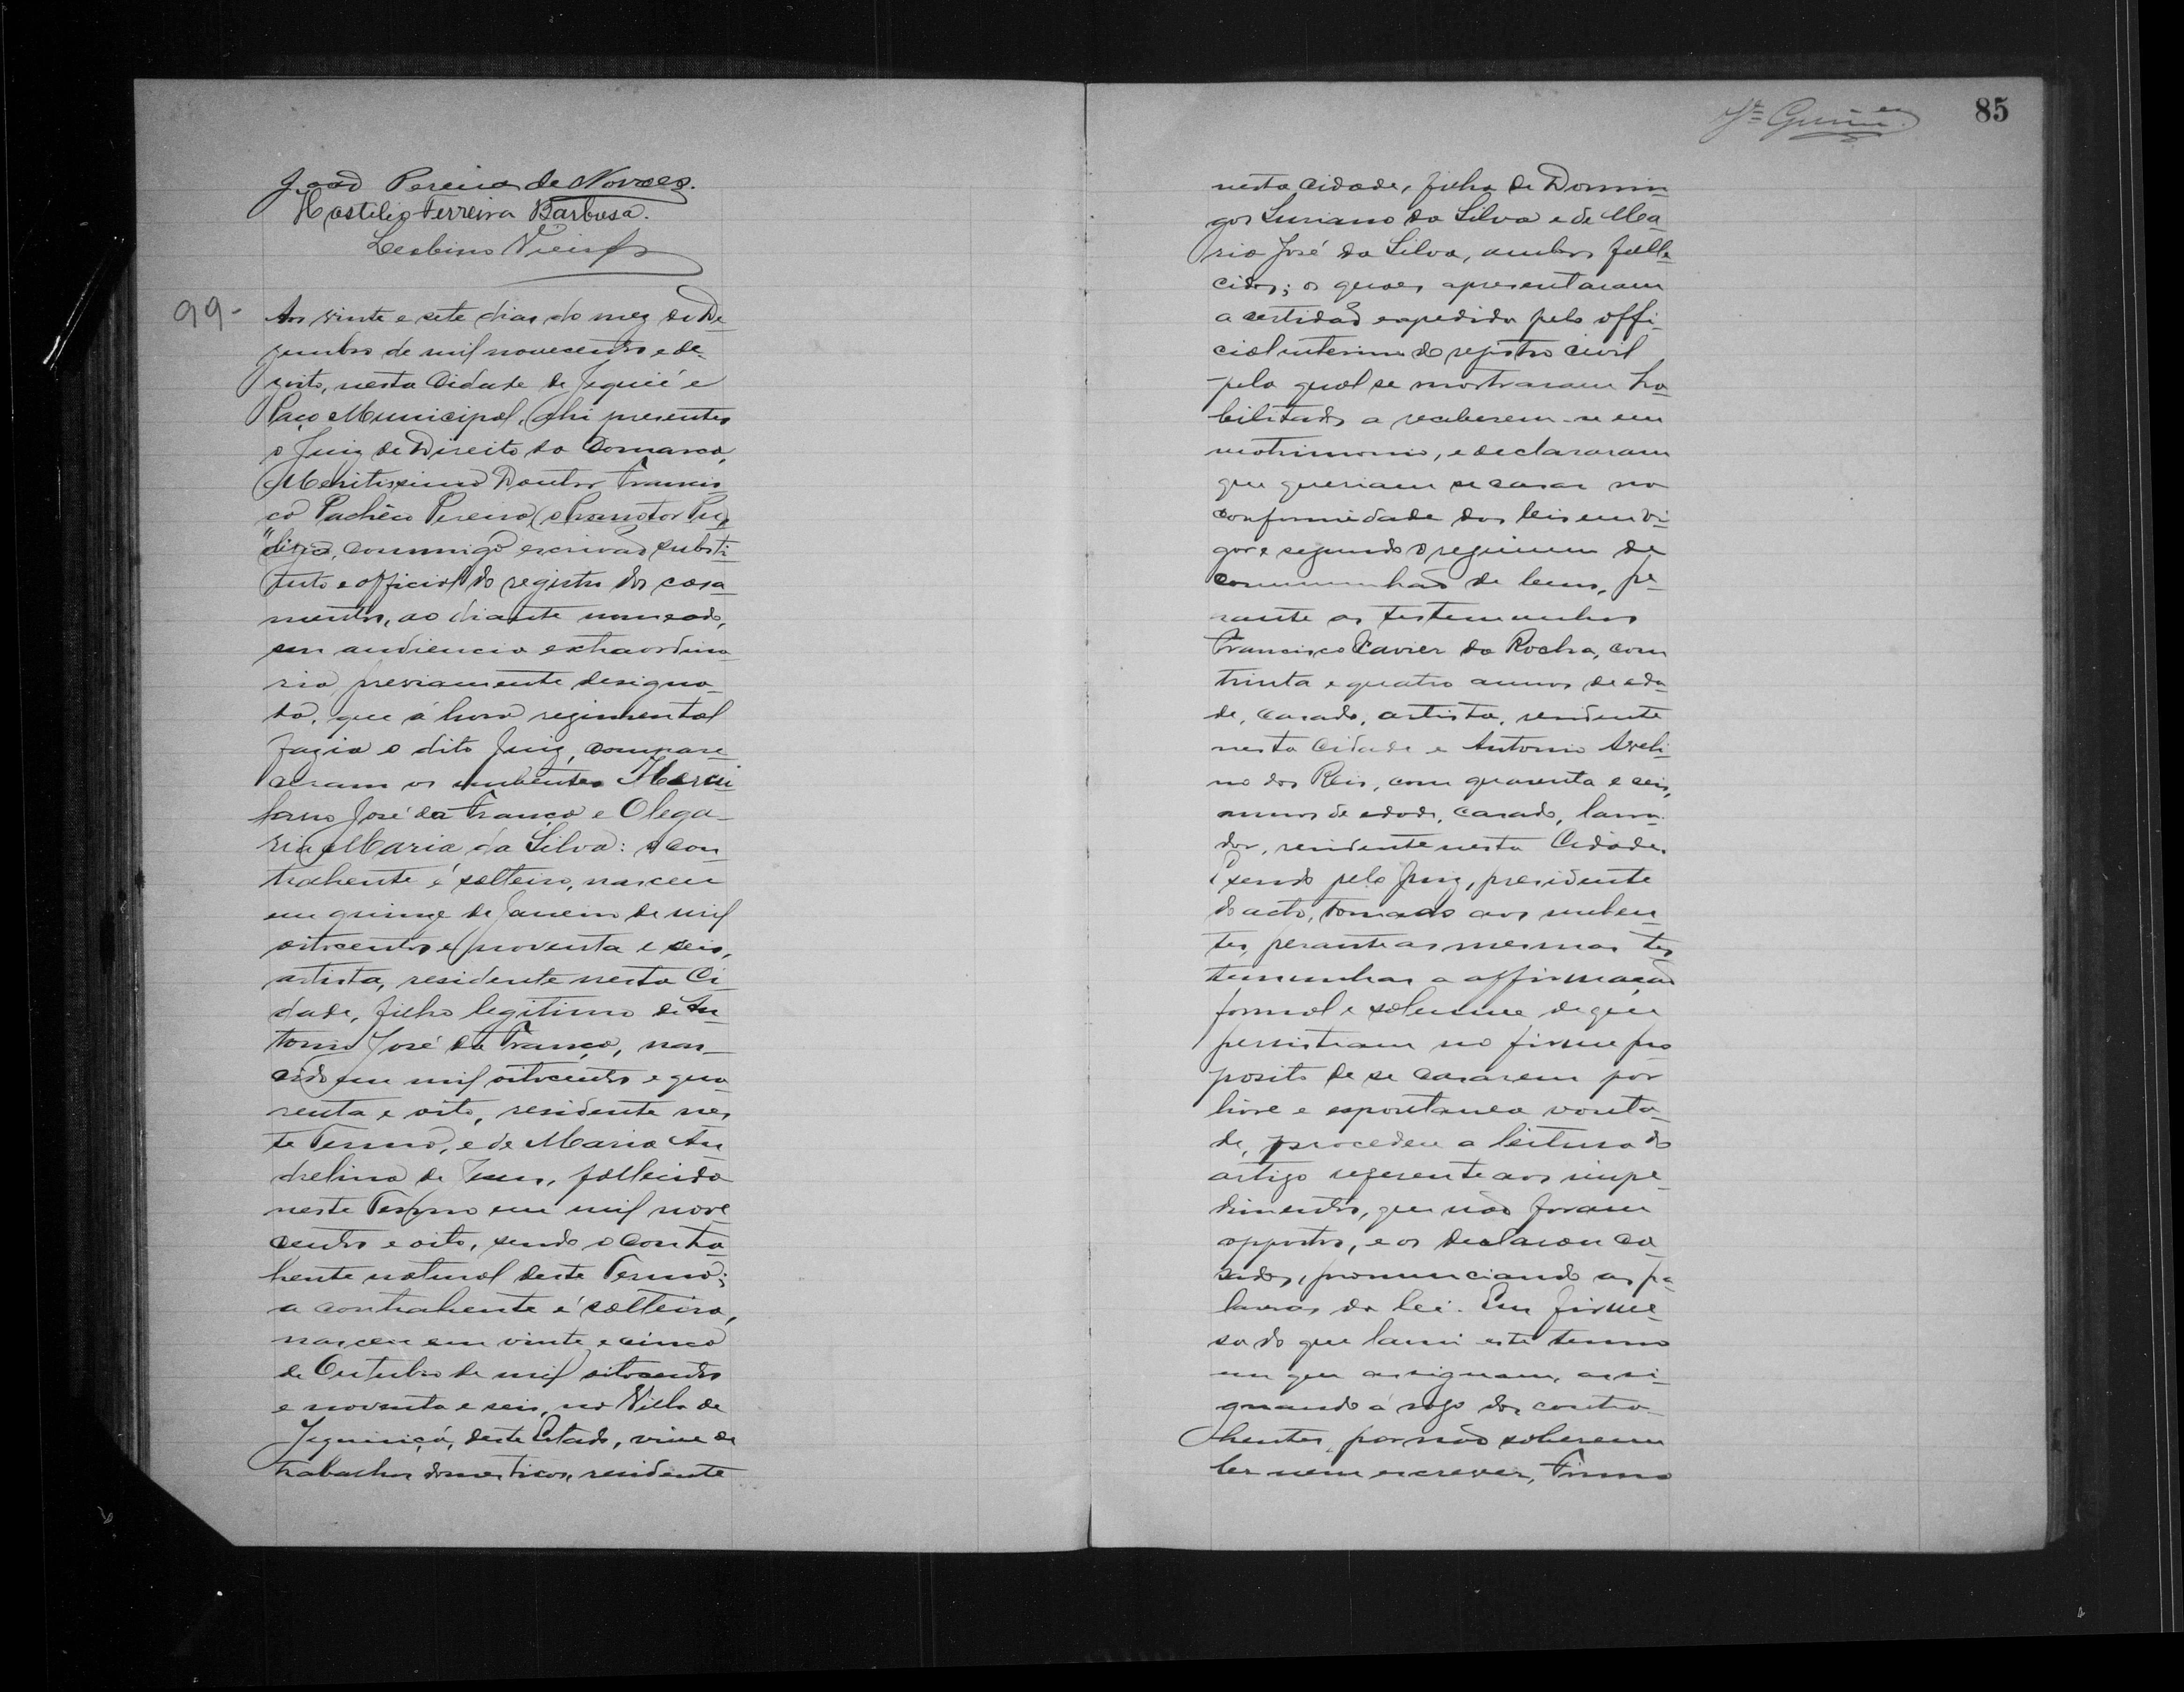 João Pereira de Novaes.
Hostilio Ferreira Barbosa.
Lesbino Vieira
99- Aos vinte e sete dias do mez de De-
zembro de mil novecentos e de-
zoito, nesta Cidade de Jequié e
Paço Municipal, ahi presentes
o Juiz de Direito da Comarca,
Meritissimo Doutor Francis-
co Pachêco Pereira, o Promotor Pu-
"blico, commigo escrivão substi-
tuto e official do registro dos casa-
mentos, ao diante nomeado,
em audiencia extraordina-
ria, previamente designa-
da, que á hora regimental
fazia o dito Juiz, compare-
ceram os nubentes
José da França e Olega-
ria Maria da Silva: o con-
trahente é solteiro, nasceu
em quinze de Janeiro de mil
oitocentos e noventa e seis,
artista, residente nesta Ci-
dade, filho legitimo de An-
tonio José da França, nas-
cido em mil oitocentos e qua-
renta e oito, residente nes-
te Termo, e de Maria An-
drelina de Jesus, fallecida
neste Termo em mil nove
centos e oito, sendo o contra-
hente natural deste Termo;
a contrahente é solteira,
nasceu em vinte e cinco
de Outubro de mil oitocentos
e noventa e seis, na Villa de
Jequiriçá, deste Estado, vive de
trabalhos domesticos, residente
85
nesta cidade, filha de Domin-
gos Luciano da Silva e de Ma-
ria José da Silva, ambos falle-
cidos; os quaes apresentaram
a certidão expedida pelo offi-
cial interino do registro civil
pela qual se mostraram ha-
bilitados a receberem-se em
matrimonio, e declararam
que queriam se casar na
conformidade das leis em vi-
gor e segundo o regimen de
communhão de bens, pe-
rante as testemunhas
Francisco Xavier da Rocha, com
trinta e quatro annos de eda-
de, casado, artista, residente
nesta cidade e Antonio Aveli-
no dos Reis, com quarenta e seis
annos de edade, casado, lavra-
dor, residente nesta Cidade.
E sendo pelo Juiz, presidente
do acto, tomado aos nuben-
tes, perante as mesmas tes-
temunhas a affirmação
formal e solemne de que
persistiam no firme pro
posito de se casarem por
livre e espontanea vonta-
de, procedeu a leitura do
artigo referente aos impe-
dimentos, que não foram
oppostos, e os declarou ca-
sados, pronunciando as pa-
lavras da lei. Em firme-
sa do que lavrei este termo
em que assignam, assi-
gnando á rogo dos contra-
hentes, por não saberem
ler nem escrever, Firmo